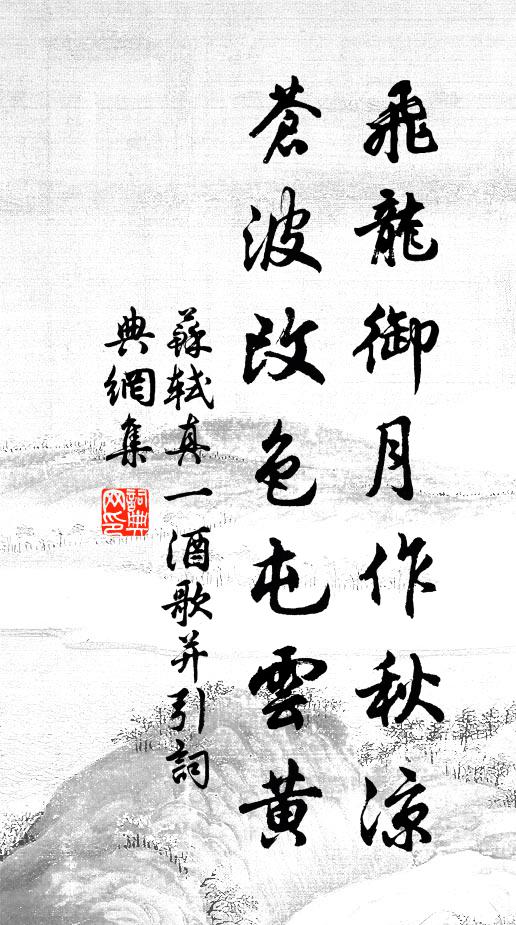 飛龍御月作秋涼
蒼波改色屯雲黃
蘇軾真一酒歌并引詞
典網集
詞典網印